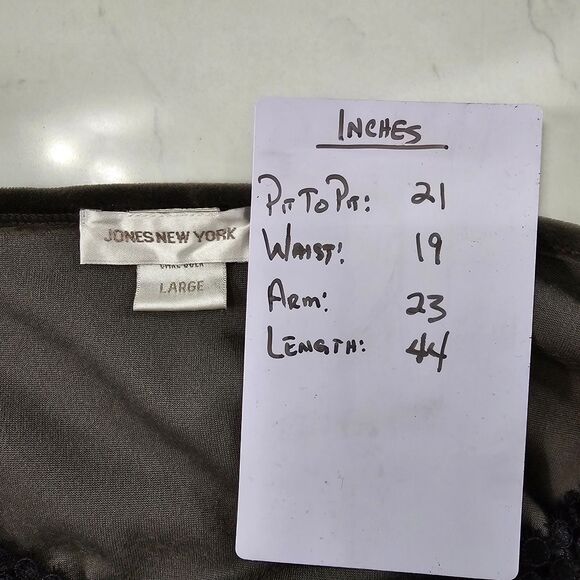 JONES NEW YORK
LARGE
INCHES
PIT TO PIT: 21
WAIST: 19
ARM: 23
LENGTH: 44